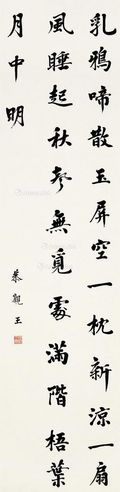 乳鴉啼散玉屏空一枕新涼一扇
風睡起秋聲無覓處滿階梧葉
月中明
恭親王